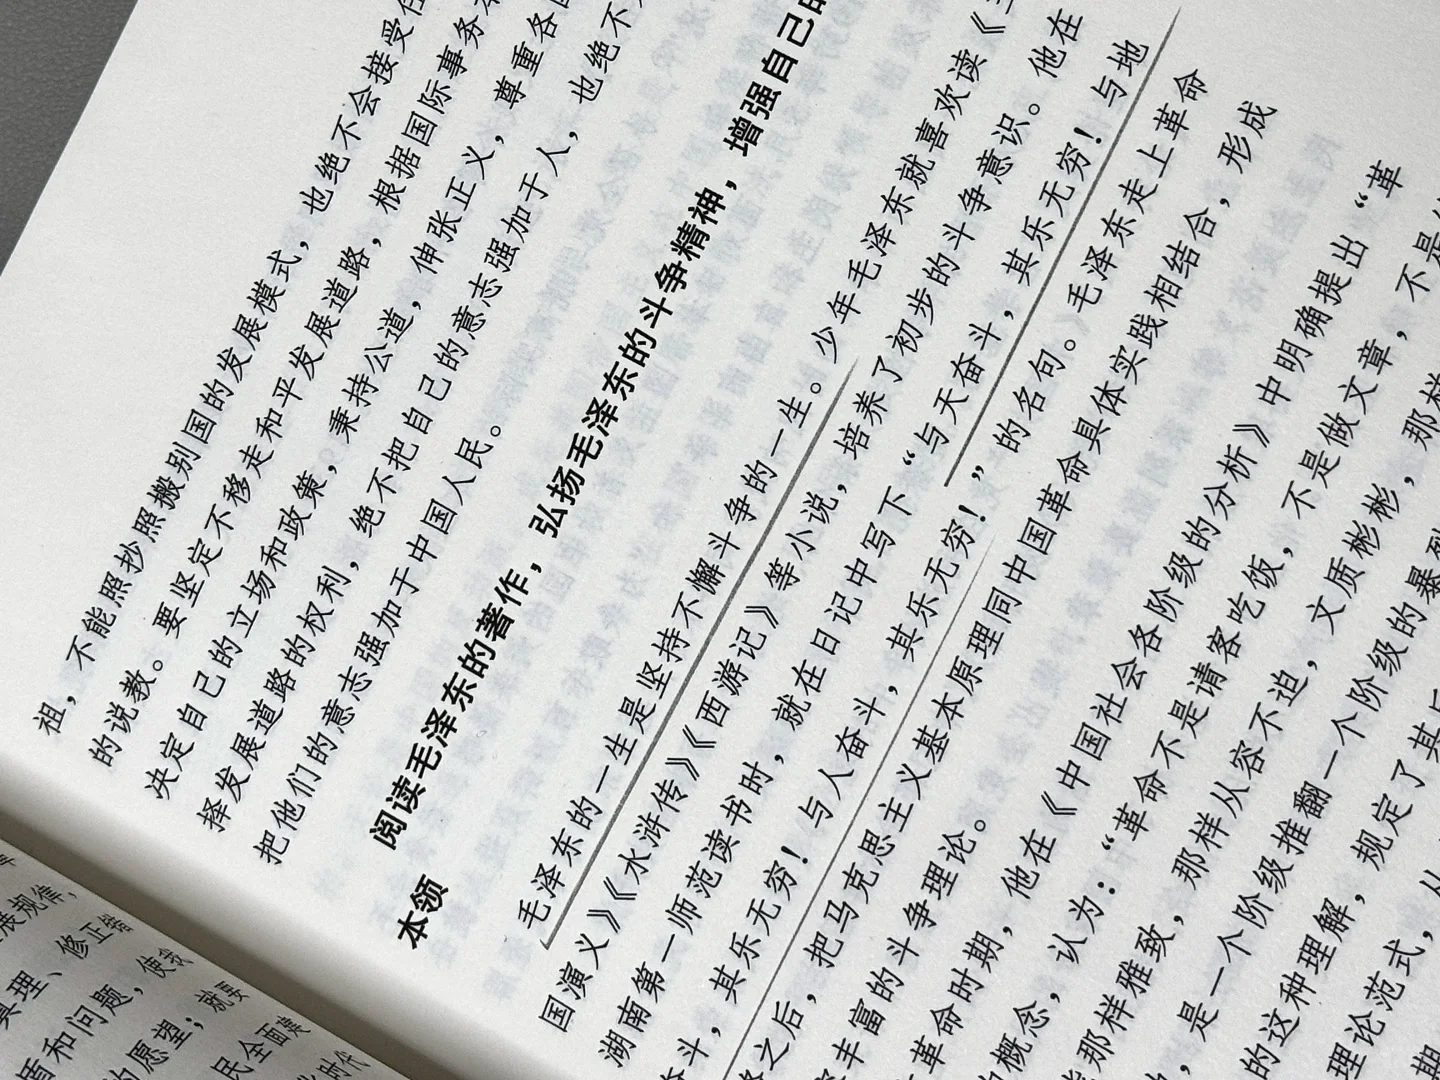 祖，不能照抄照搬别国的发展模式，也绝不会接受任
的说教。要坚定不移走和平发展道路，根据国际事务本
决定自己的立场和政策，秉持公道，伸张正义，尊重各国
择发展道路的权利，绝不把自己的意志强加于人，也绝不
把他们的意志强加于中国人民。
阅读毛泽东的著作，弘扬毛泽东的斗争精神，增强自己的
本领
毛泽东的一生是坚持不懈斗争的一生。少年毛泽东就喜欢读《三
国演义》《水浒传》《西游记》等小说，培养了初步的斗争意识。他在
湖南第一师范读书时，就在日记中写下“与天奋斗，其乐无穷！与地
奋斗，其乐无穷！与人奋斗，其乐无穷！”的名句。毛泽东走上革命
之后，把马克思主义基本原理同中国革命具体实践相结合，形成
丰富的斗争理论。
革命时期，他在《中国社会各阶级的分析》中明确提出“革
概念，认为：“革命不是请客吃饭，不是做文章，不是
那样雅致，那样从容不迫，文质彬彬，那样
，是一个阶级推翻一个阶级的暴烈
的这种理解，规定了其
理论范式，从
展规律，
真理、修正错
盾和问题，使我
的愿望；就要
民全面
时代